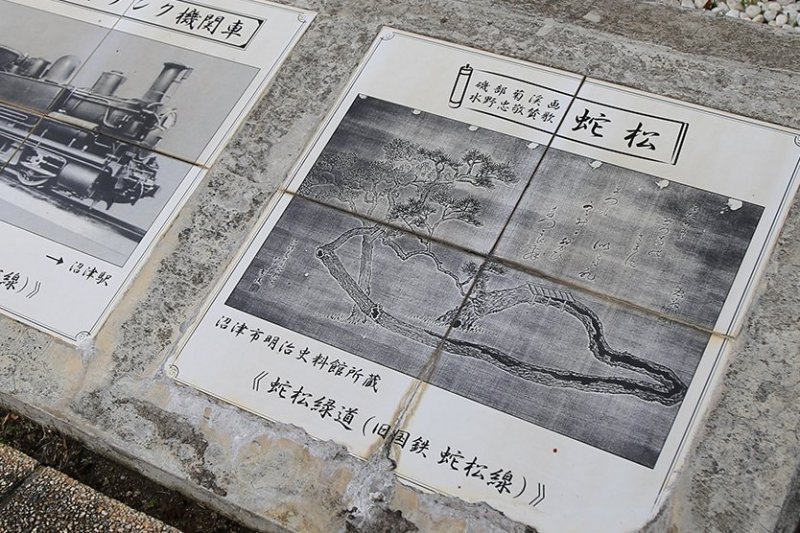 ンク機関車
→沼津駅
線)》
磯部菊渓画
水野忠敬賛歌
蛇松
沼津市明治史料館所蔵
《蛇松緑道(旧国鉄 蛇松線)》